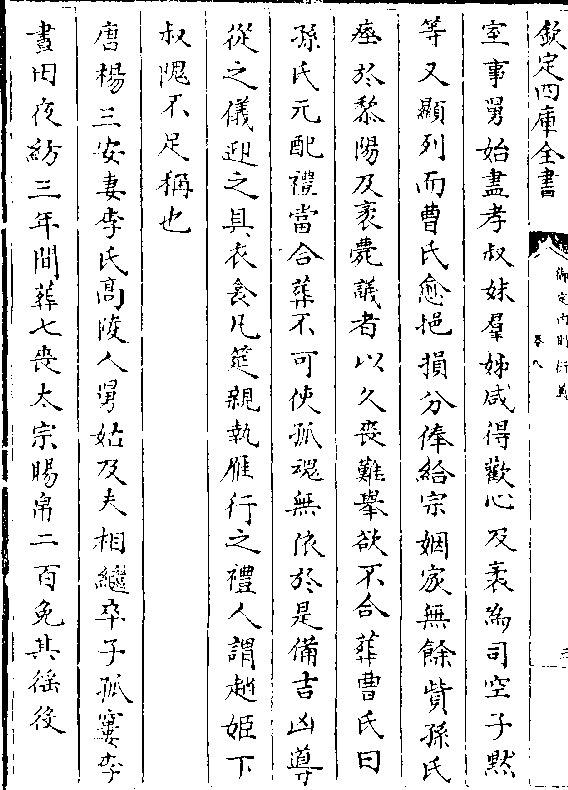 欽定四庫全書
御定内則衍義
卷八
室事舅姑盡孝叔妹羣姊咸得歡心及袤為司空子黙
等又顯列而曹氏愈挹損分俸給宗姻家無餘貲孫氏
瘞於黎陽及袤薨議者以久喪難舉欲不合葬曹氏曰
孫氏元配禮當合葬不可使孤魂無依於是備吉凶導
從之儀迎之具衣衾几筵親執雁行之禮人謂趙姬下
叔隗不足稱也
唐楊三安妻李氏髙陵人舅姑及夫相繼卒子孤窶李
晝田夜紡三年間葬七喪太宗賜帛二百免其徭役